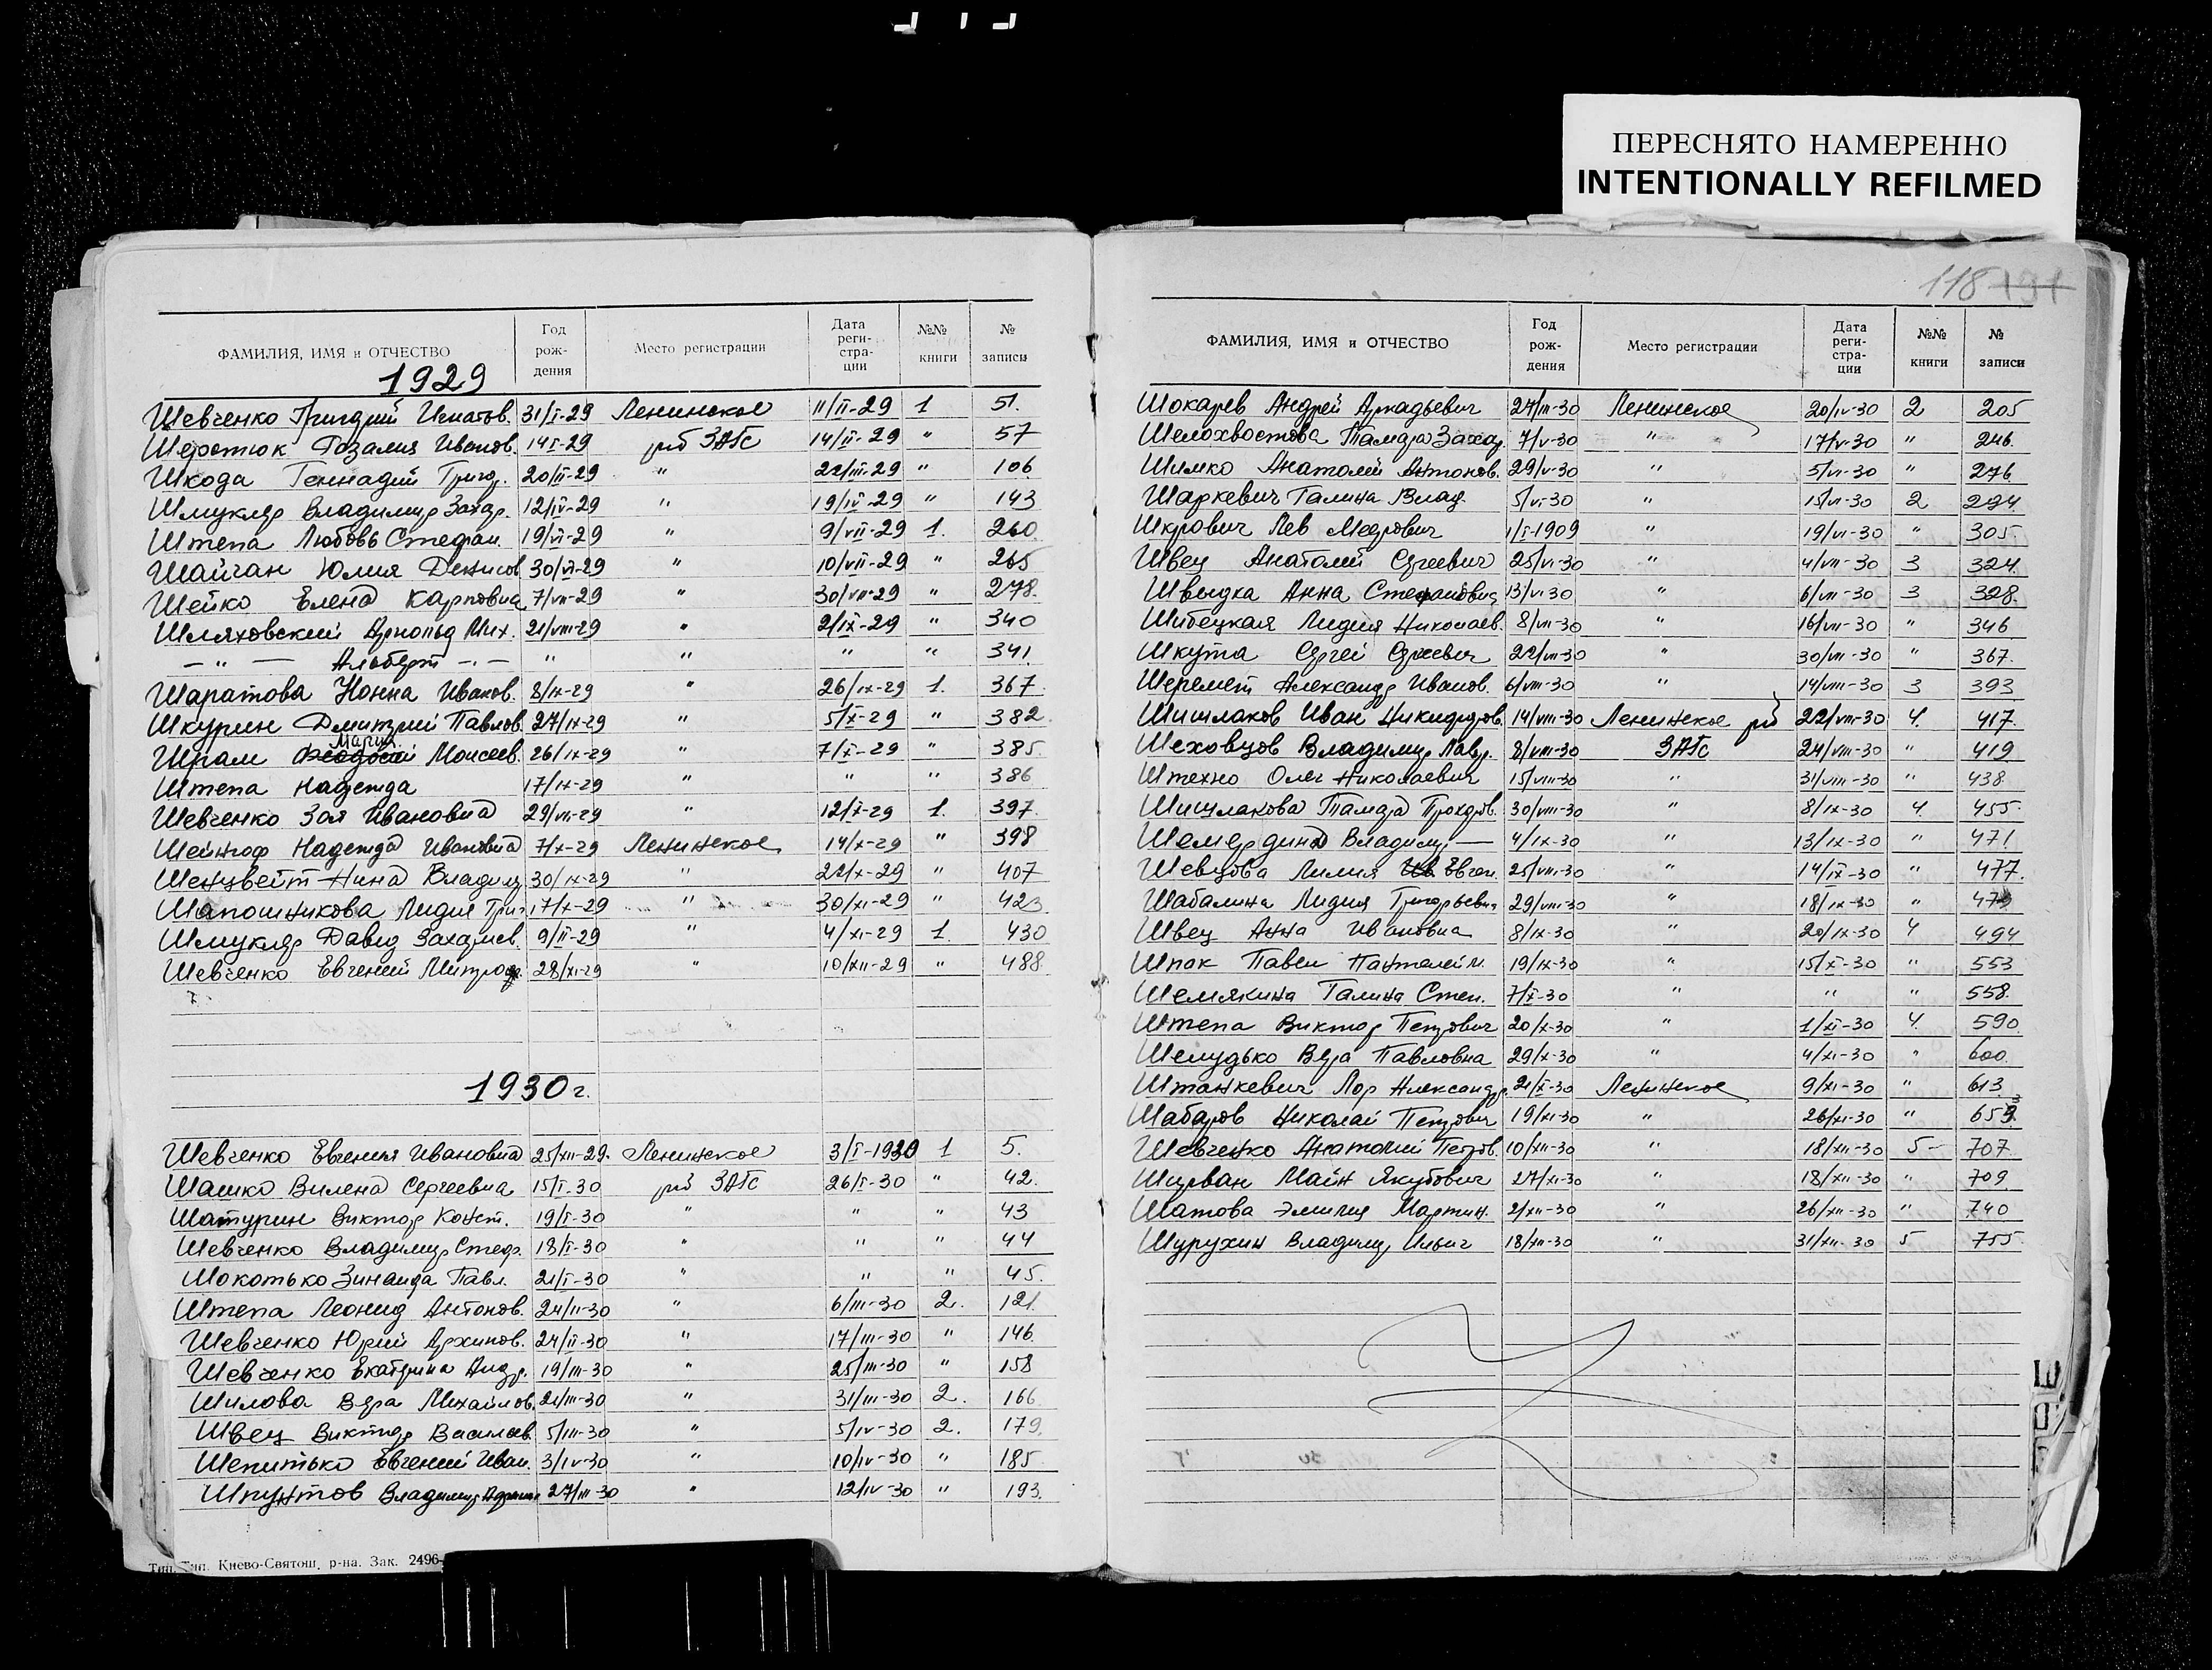 ПЕРЕСНЯТО НАМЕРЕННО
INTENTIONALLY REFILMED
ФАМИЛИЯ, ИМЯ и ОТЧЕСТВО Год рождения Место регистрации Дата регистрации №№ книги № записи
1929
Шевченко Григорий Игнатов. 31/I-29 Ленинское 11/II-29 1 51.
Шеротюк Розалия Иванов. 14/I-29 рб ЗАГс 14/II-29 " 57
Шкода Геннадий Григор. 20/II-29 " 22/III-29 " 106
Шмукляр Владимир Захар. 12/IV-29 " 19/IV-29 " 143
Штепа Любовь Стефан. 19/VI-29 " 9/VII-29 1. 260
Шайчан Юлия Денисов 30/VI-29 " 10/VII-29 " 265
Шейко Елена Карповна 7/VII-29 " 30/VII-29 " 278.
Шляховский Арнольд Мих. 21/VIII-29 " 2/IX-29 " 340
— " — Альберт — " — " " " " 341
Шаратова Нонна Иванов. 8/IX-29 " 26/IX-29 1. 367
Шкурин Дмитрий Павлов. 27/IX-29 " 5/X-29 " 382
Мария
Шрам Моисеев. 26/IX-29 " 7/X-29 " 385
Штепа Надежда 17/IX-29 " " " 386
Шевченко Зоя Ивановна 29/VII-29 " 12/X-29 1. 397
Шейнгоф Надежда Ивановна 7/X-29 Ленинское 14/X-29 " 398
Шенцвейт Нина Владим. 30/IX-29 " 22/X-29 " 407
Шапошникова Лидия Григ. 17/X-29 " 30/XI-29 " 423
Шмукляр Давид Захариев. 9/II-29 " 4/XI-29 1. 430
Шевченко Евгений Митроф. 28/XI-29 " 10/XII-29 " 488
1930 г.
Шевченко Евгения Ивановна 25/XII-29. Ленинское 3/I-1930 1 5.
Шашко Вилена Сергеевна 15/I-30 рб ЗАГс 26/I-30 " 42
Шатурин Виктор Конст. 19/I-30 " " " 43
Шевченко Владимир Стеф. 18/I-30 " " " 44
Шокотько Зинаида Павл. 21/I-30 " " " 45.
Штепа Леонид Антонов. 24/II-30 " 6/III-30 2. 121
Шевченко Юрий Архипов. 24/II-30 " 17/III-30 " 146
Шевченко Екатерина Андр. 19/III-30 " 25/III-30 " 158
Шилова Вера Михайлов. 21/III-30 " 31/III-30 2. 166
Швец Виктор Васильев. 5/III-30 " 5/IV-30 2. 179
Шепитько Евгений Иван. 3/IV-30 " 10/IV-30 " 185
Шпунтов Владимир 27/III-30 " 12/IV-30 " 193.
Тип. Киево-Святош. р-на. Зак. 2496-
118 191
ФАМИЛИЯ, ИМЯ и ОТЧЕСТВО Год рождения Место регистрации Дата регистрации №№ книги № записи
Шокарев Андрей Аркадьевич 27/III-30 Ленинское 20/IV-30 2 205
Шелохвостова Тамара Захар. 7/V-30 " 17/V-30 " 246.
Шимко Анатолий Антонов. 29/V-30 " 5/VI-30 " 276
Шаркевич Галина Влад. 5/VI-30 " 15/VI-30 2 294
Шкрович Лев Меерович 1/I-1909 " 19/VI-30 " 305.
Швец Анатолий Сергеевич 25/VI-30 " 4/VII-30 3 324.
Швыдка Анна Стефановна 13/VI-30 " 6/VII-30 3 328.
Шибецкая Лидия Николаев. 8/VII-30 " 16/VII-30 " 346
Шкута Сергей Сергеевич 22/VII-30 " 30/VII-30 " 367.
Шеремет Александр Иванов. 6/VIII-30 " 14/VIII-30 3 393
Шишлаков Иван Никифоров. 14/VIII-30 Ленинское рб 22/VIII-30 4. 417.
Шеховцов Владимир Лавр. 8/VIII-30 ЗАГс 24/VIII-30 " 419
Штехно Олег Николаевич 15/VIII-30 " 31/VIII-30 " 438
Шишлакова Тамара Прохоров. 30/VIII-30 " 8/IX-30 4. 455.
Шемердина Владимир — 4/IX-30 " 13/IX-30 " 471
Шевцова Лилия Евген. 25/VIII-30 " 14/IX-30 " 477.
Шабалина Лидия Григорьевна 29/VIII-30 " 18/IX-30 " 479
Швец Анна Ивановна 8/IX-30 " 20/IX-30 4 494
Шпак Павел Пантелейм. 19/IX-30 " 15/X-30 " 553
Шемякина Галина Степ. 7/X-30 " " " 558.
Штепа Виктор Петрович 20/X-30 " 1/XI-30 4. 590
Шелудько Вера Павловна 29/X-30 " 4/XI-30 " 600.
Штанкевич Лор Александр. 21/X-30 Ленинское 9/XI-30 " 613
Шабаров Николай Петрович 19/XI-30 " 26/XI-30 " 653
Шевченко Анатолий Петров. 10/XII-30 " 18/XII-30 5 707
Ширван Майн Якубович 27/XI-30 " 18/XII-30 " 709
Шатова Эмилия Мартин. 2/XII-30 " 26/XII-30 " 740
Шурухин Владимир Ильич 18/XII-30 " 31/XII-30 5 755